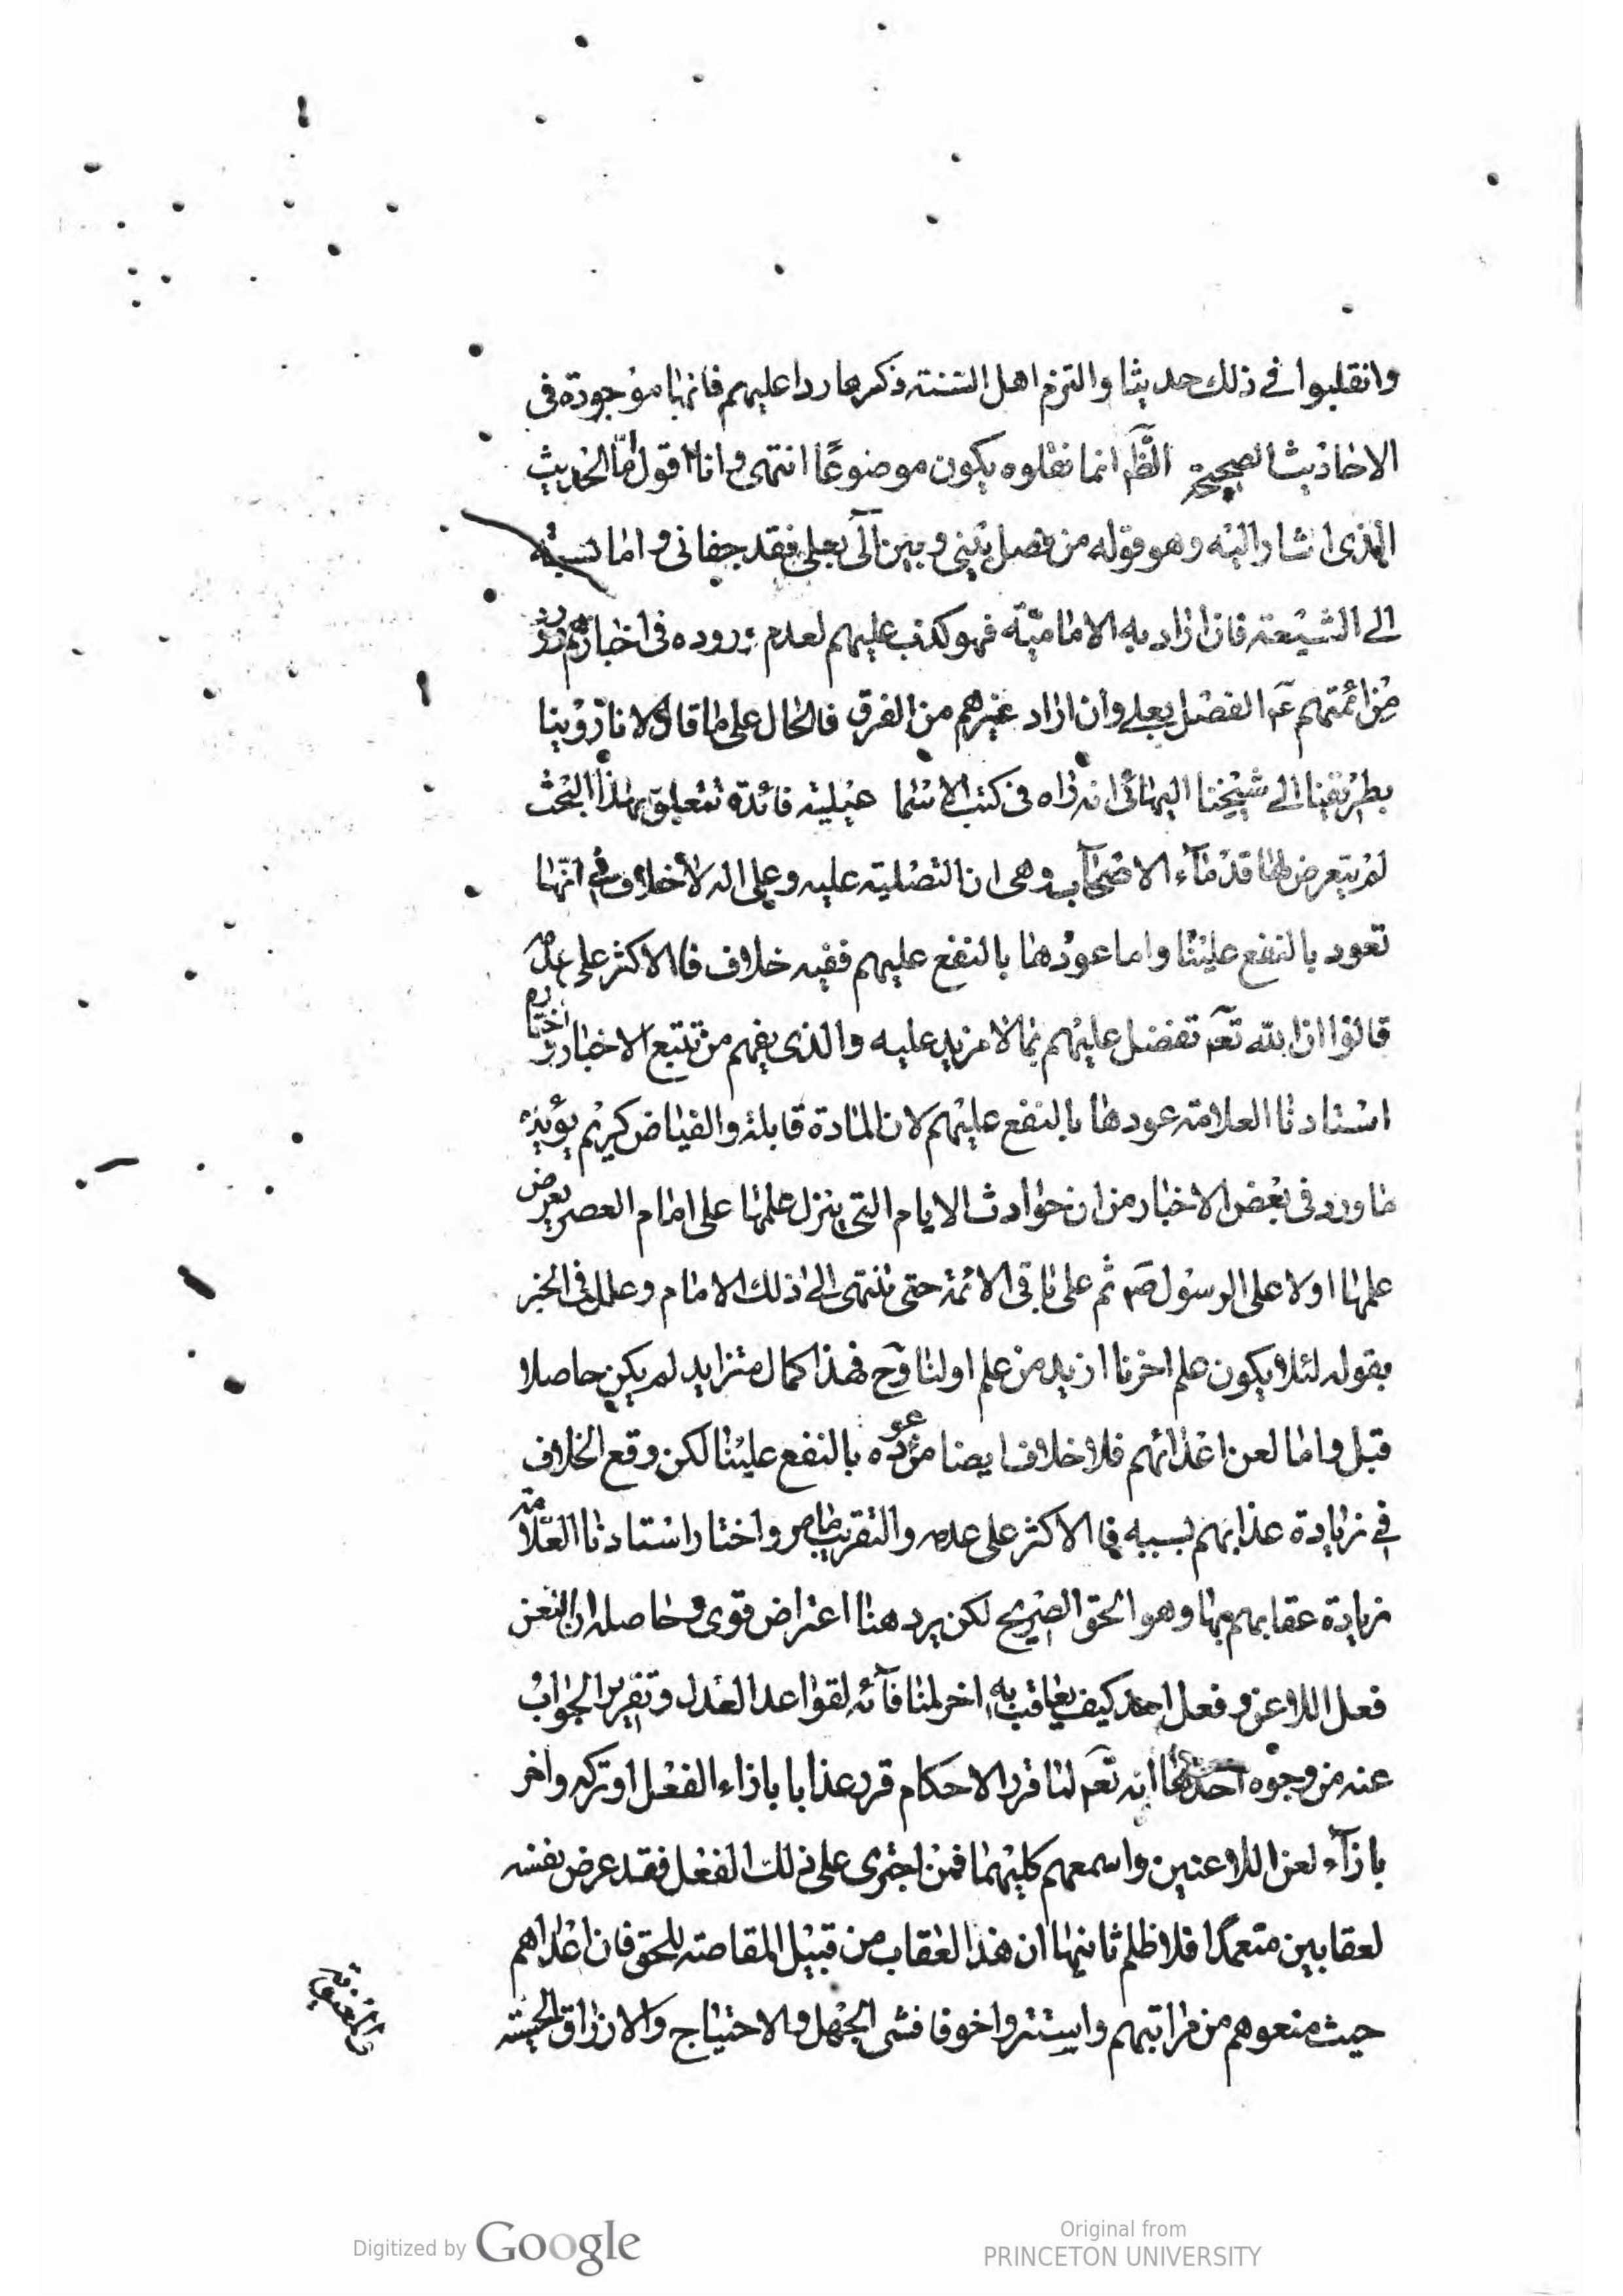 وانقلبوا في ذلك حديثا والتزم اهل السنته ذكرها ردا عليهم فانها موجودة فى
الاحاديث الصحيحة الظ انما نقلوه يكون موضوعًا انتهى وانا اقول امّا الحديث
الذى اشار اليه وهو قوله من فصل بينى وبين آلى بعلى فقد جفانى واما نسبته
الى الشيعة فان اراد به الامامية فهو كذب عليهم لعدم وروده فى اخبارهم
من ائمتهم عم الفصل بعلى وان اراد غيرهم من الفرق فالحال على ما قال لانا روينا
بطريقنا الى شيخنا البهائى انه راه فى كتب الاسماعيلية فائدة تتعلق بهذا البحث
لم يتعرض لها قدماء الاصحاب وهى ان التصلية عليه وعلى اله لا خلاف فى انها
تعود بالنفع علينا واما عودها بالنفع عليهم ففيه خلاف فالاكثر على عدمه
قالوا ان الله تعم تفضل عليهم بما لا مزيد عليه والذى يفهم من تتبع الاخبار واختاره
استادنا العلامة عودها بالنفع عليهم لان المادة قابلة والفياض كريم يؤيده
ما ورد فى بعض الاخبار من ان حوادث الايام التى ينزل علمها على امام العصر يعرض
علمها اولا على الرسول صم ثم على باقى الائمة حتى ينتهى الى ذلك الامام وعلل فى الخبر
بقوله لئلا يكون علم اخرنا ازيد من علم اولنا وح فهذا كمال متزايد لم يكن حاصلا
قبل واما لعن اعدائهم فلا خلاف ايضا من عوده بالنفع علينا لكن وقع الخلاف
فى زيادة عذابهم بسببه فالاكثر على عدمه والتقريب ما مر واختار استادنا العلّامة
زيادة عقابهم بها وهو الحق الصريح لكن يرد هنا اعتراض قوى وحاصله ان اللعن
فعل اللاعن وفعل احد كيف يعاقب به اخر لمنافاته لقواعد العدل وتقرير الجواب
عنه من وجوه احدها انه تعم لما قرر الاحكام قرر عذابا بازاء الفعل او تركه واخر
بازآء لعن اللاعنين واسمعهم كليهما فمن اجترى على ذلك الفعل فقد عرض نفسه
لعقابين متعمدا فلا ظلم ثانيها ان هذا العقاب من قبيل المقاصة للحق فان اعداهم
حيث منعوهم من مراتبهم واستتروا خوفا فشى الجهل والاحتياج والارزاق الحسية
Digitized by Google
Original from
PRINCETON UNIVERSITY